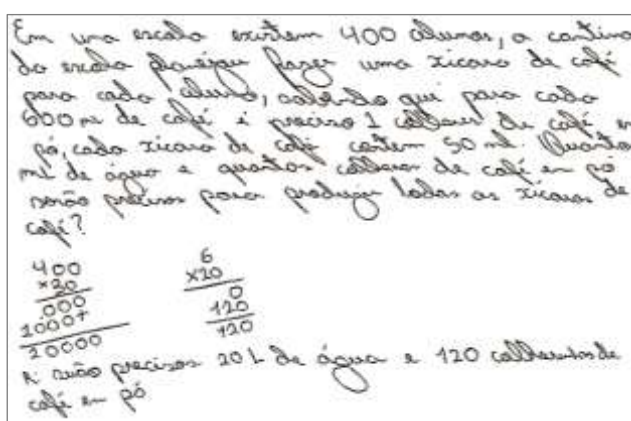 Em uma escola existem 400 alunos, a cantina
da escola planejou fazer uma xicara de café
para cada aluno, sabendo que para cada
600 ml de café é preciso 1 colher de café em
pó, cada xicara de café contem 50 ml. Quanto
ml de água e quantas colheres de café em pó
serão precisos para produzir todas as xicaras de
café?
400
6
×20
000
×20
0
1000+
120
20000
120
R: serão precisos 20 L de água e 120 de
café em pó